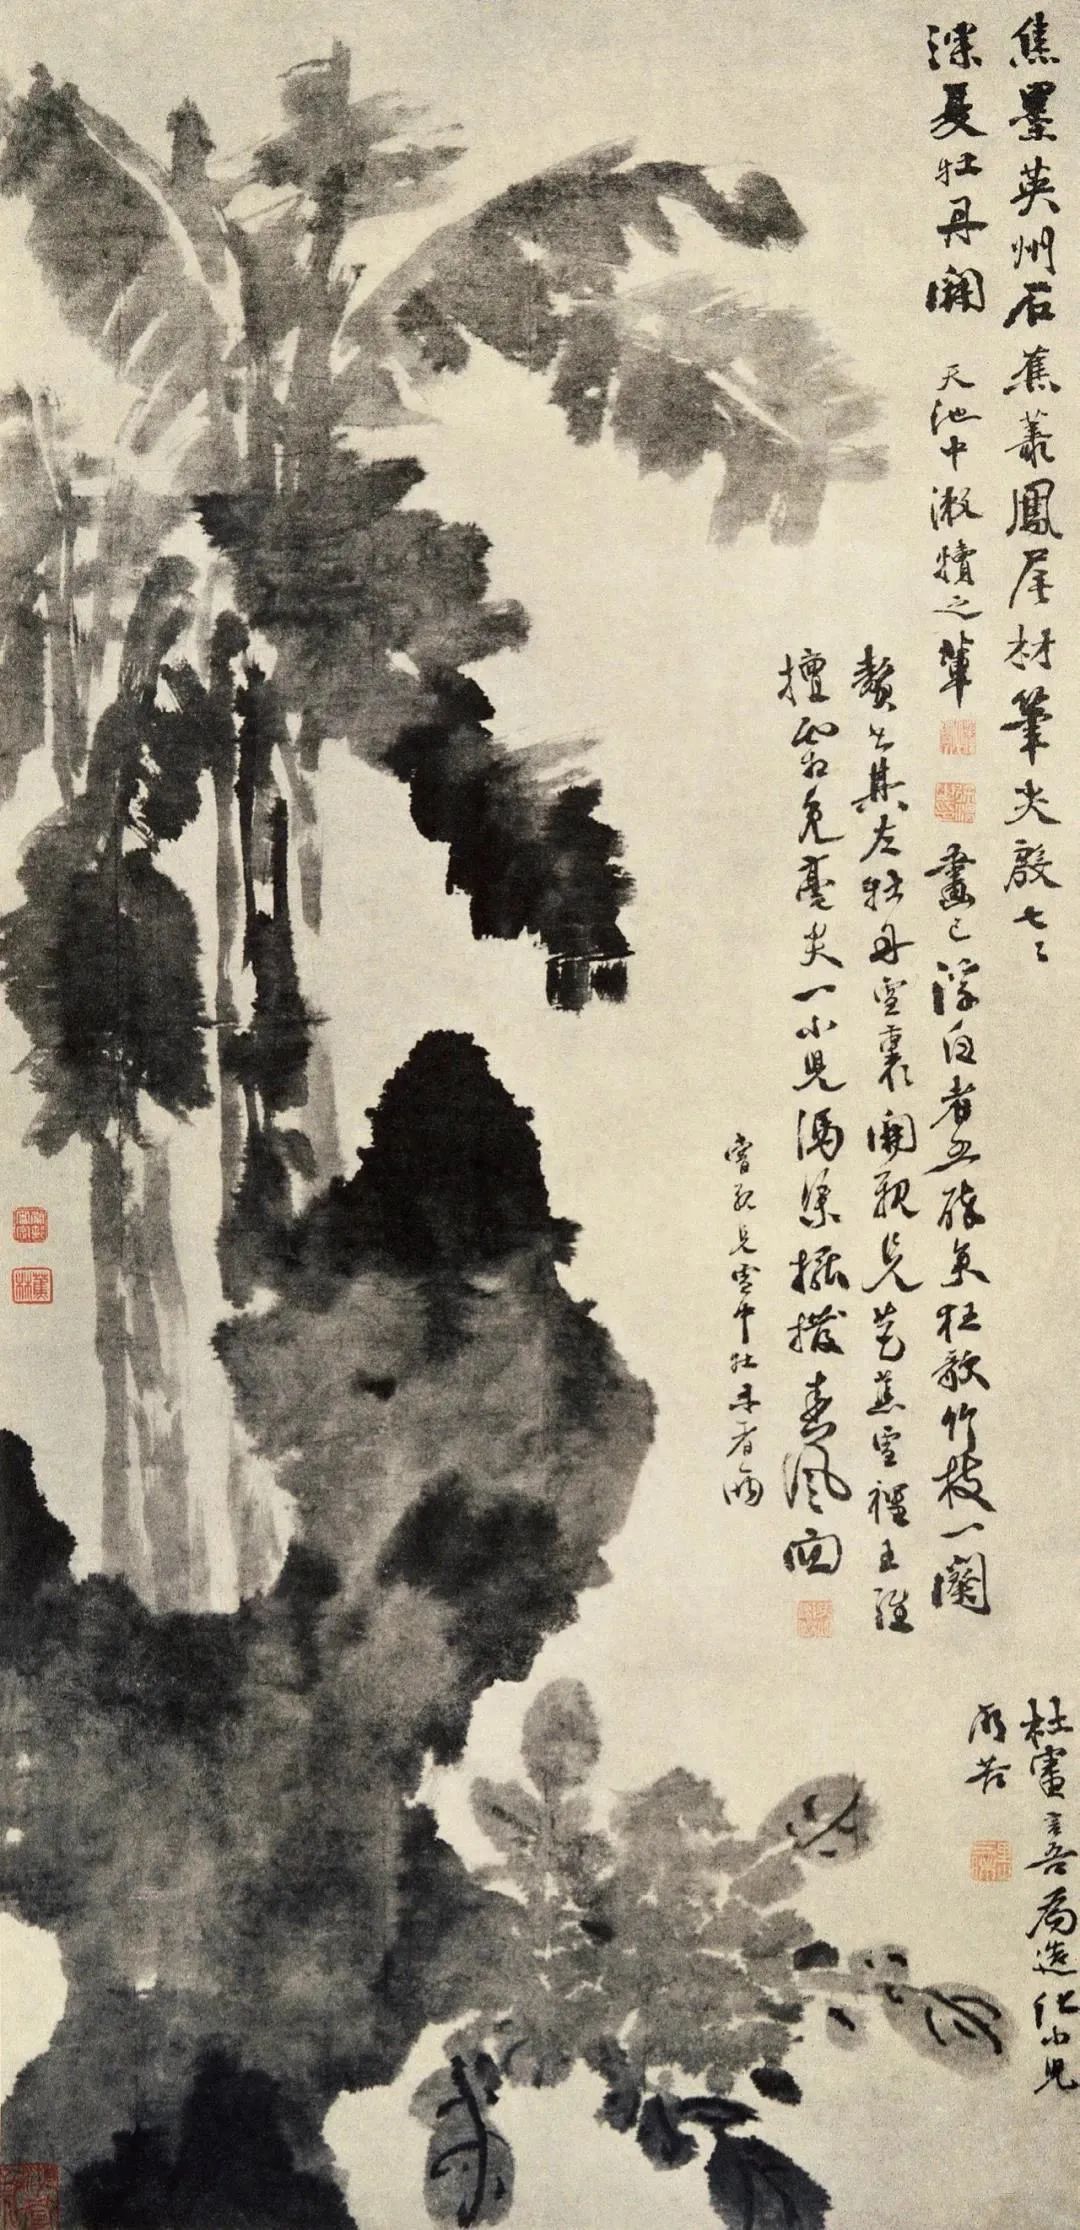 焦墨英州石蕉叢鳳尾材筆尖殷七七
深夏牡丹開
天池中漱犢之輩
畫已浮白者五醉矣狂歌竹枝一闋
贅書其左牡丹雪裏開親見芭蕉雪裡王維
擅霜兔毫尖一小兒馮渠擺撥春風面
嘗親見雪中牡丹者兩
杜審言吾為造化小兒
所苦
蕉林